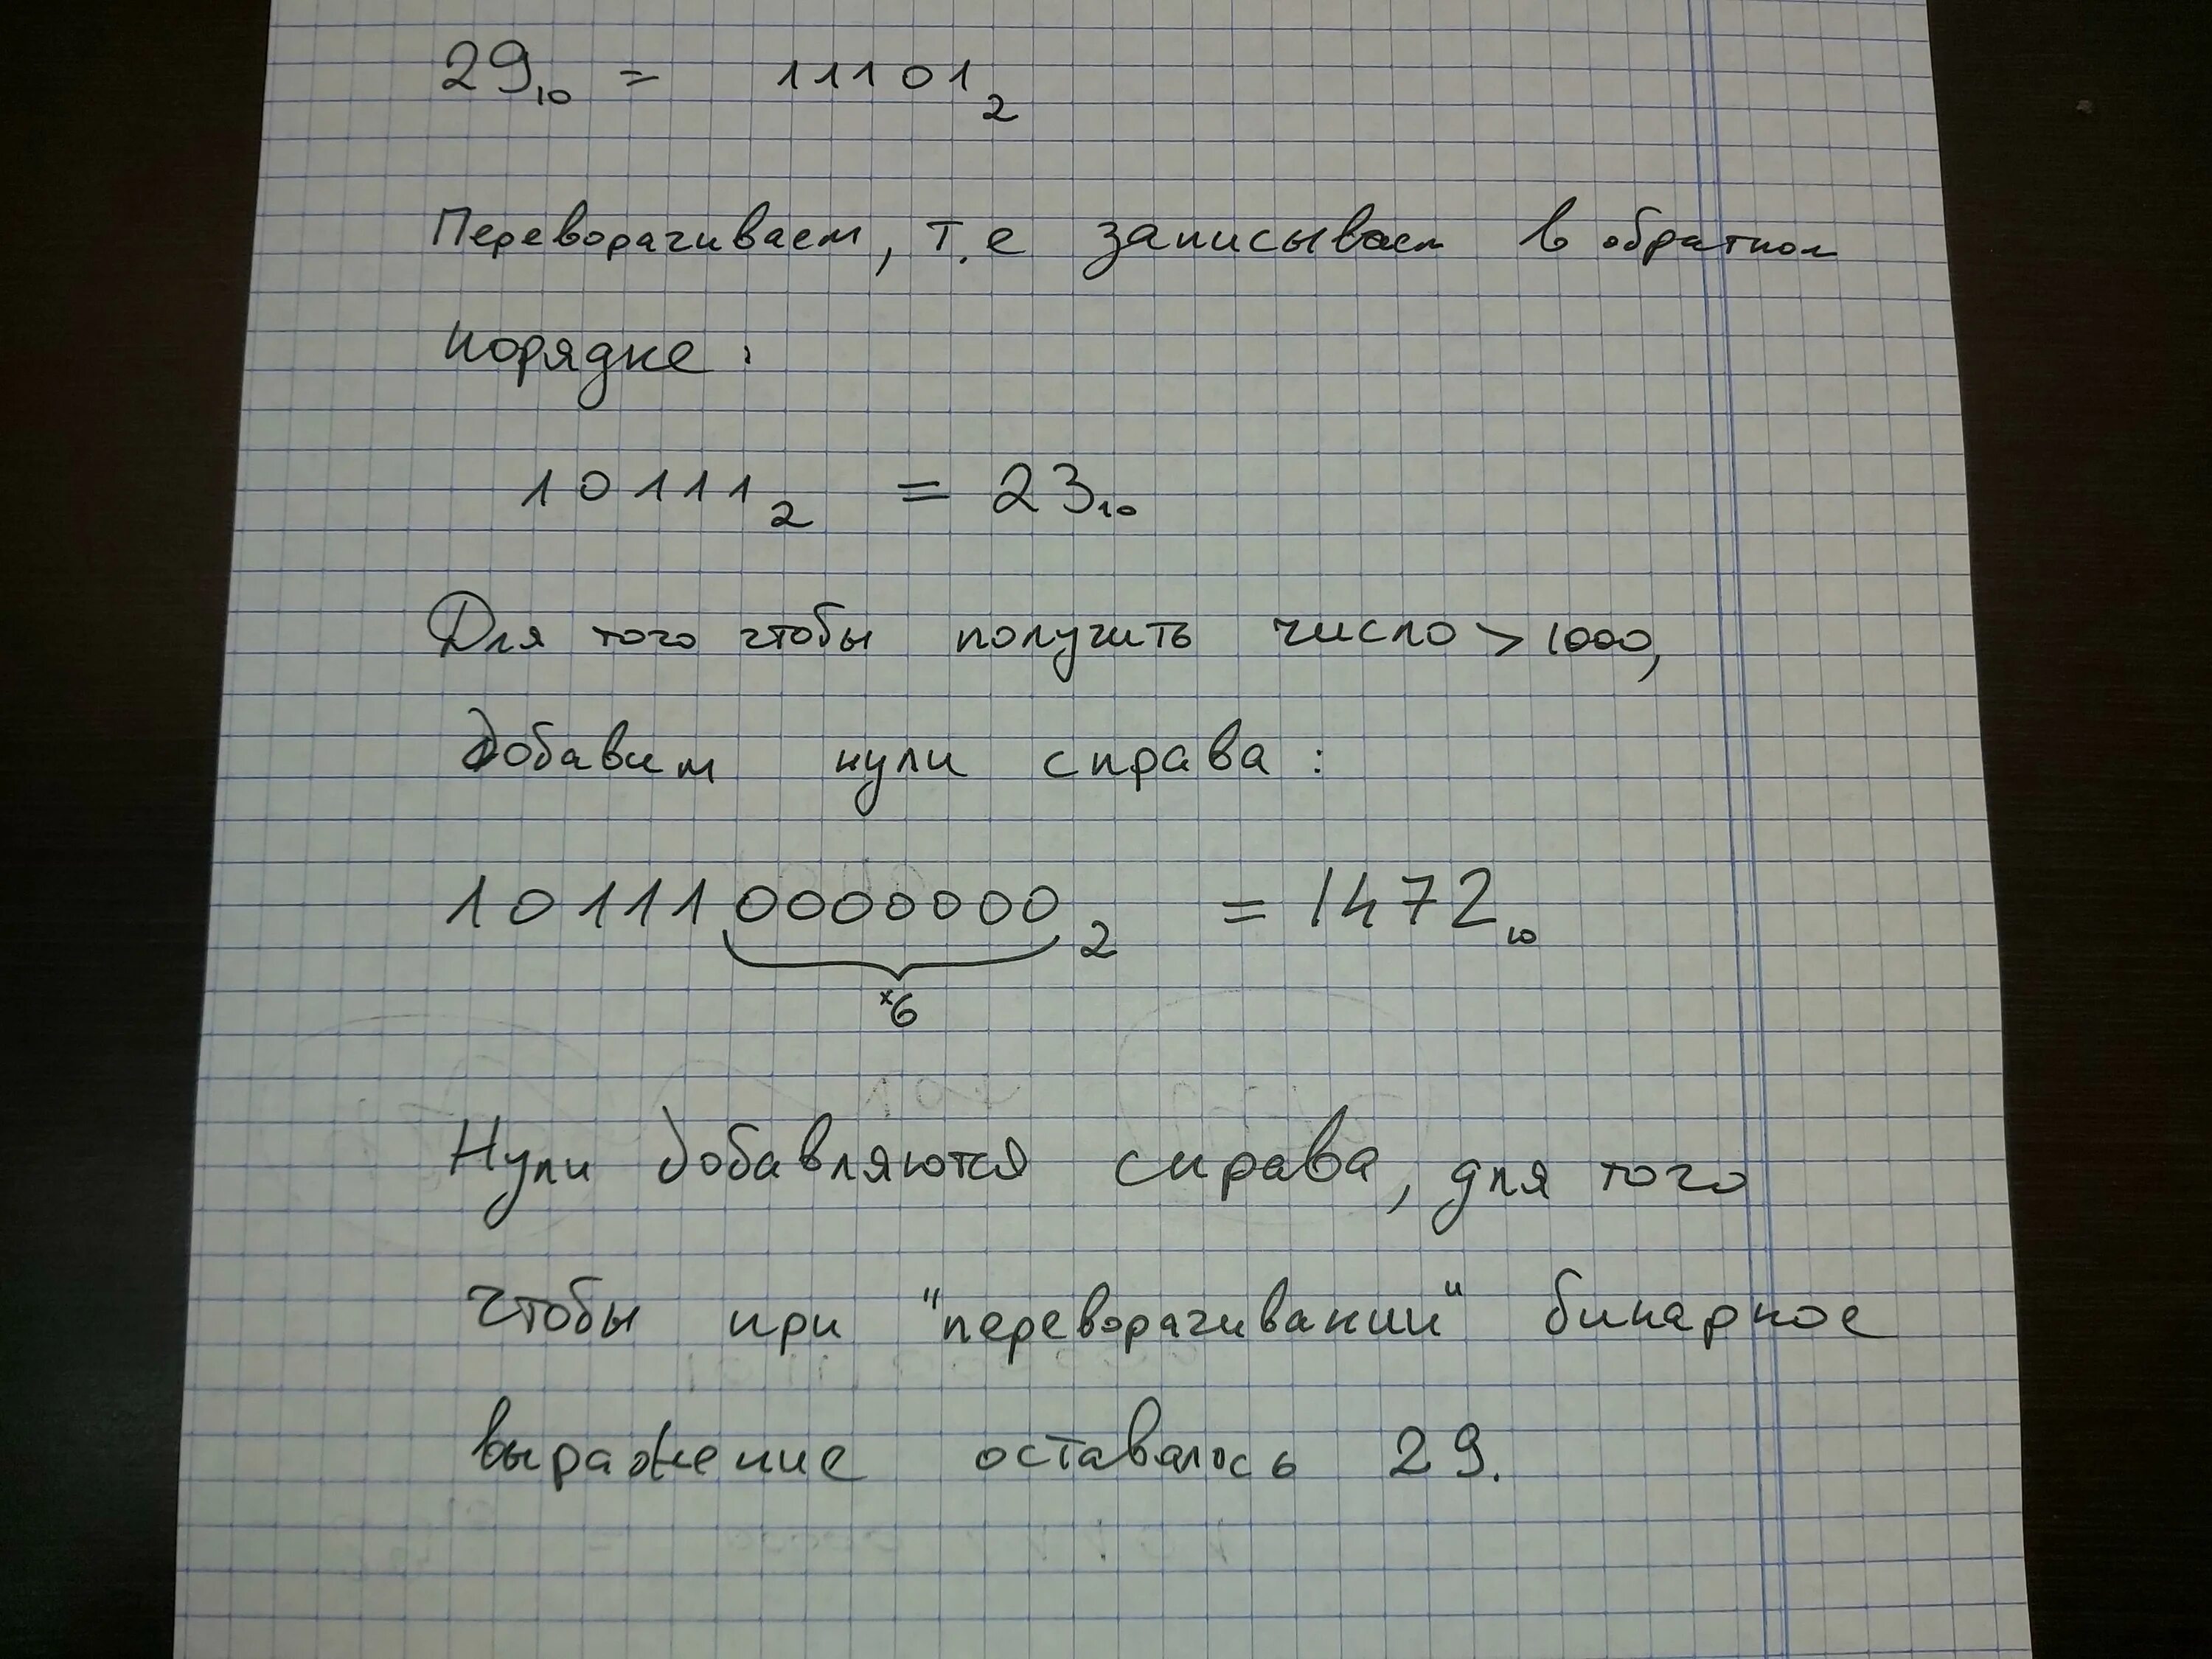 29₁₀ = 11101₂
Переворачиваем, т.е записываем в обратном
порядке:
10111₂ = 23₁₀
Для того чтобы получить число > 1000,
добавим нули справа:
101110000000₂ = 1472₁₀
×6
Нули добавляются справа, для того
чтобы при "переворачивании" бинарное
выражение оставалось 29.